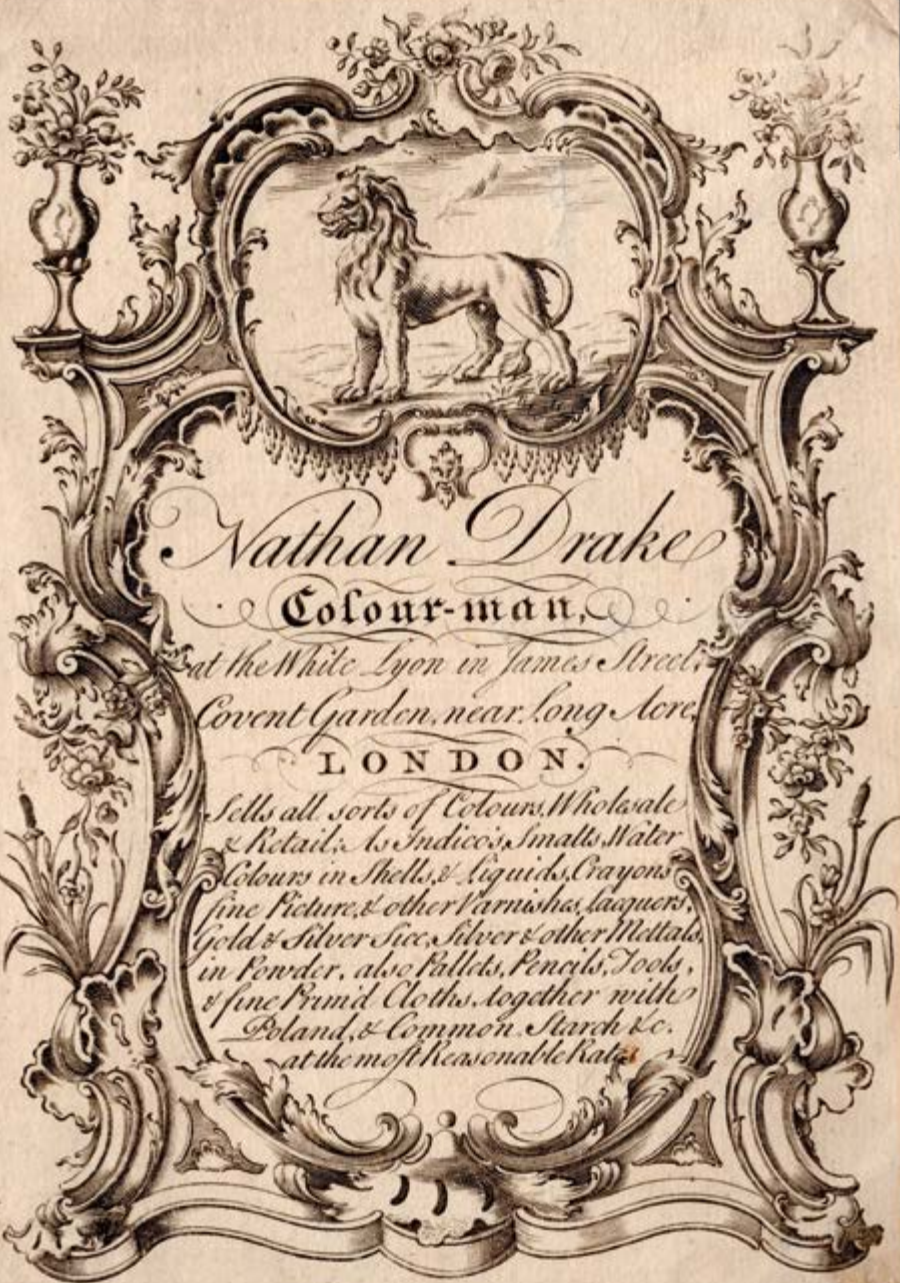 Nathan Drake
Colour-man,
at the White Lyon in James Street,
Covent Garden, near Long Acre,
LONDON.
Sells all sorts of Colours, Wholesale
& Retail; As Indico's, Smalts, Water
Colours in Shells, & Liquids, Crayons
fine Picture, & other Varnishes, Lacquers,
Gold & Silver Sice, Silver & other Mettals,
in Powder, also Pallets, Pencils, Tools,
& fine Prim'd Cloths, together with
Poland, & Common, Starch &c.
at the most Reasonable Rates